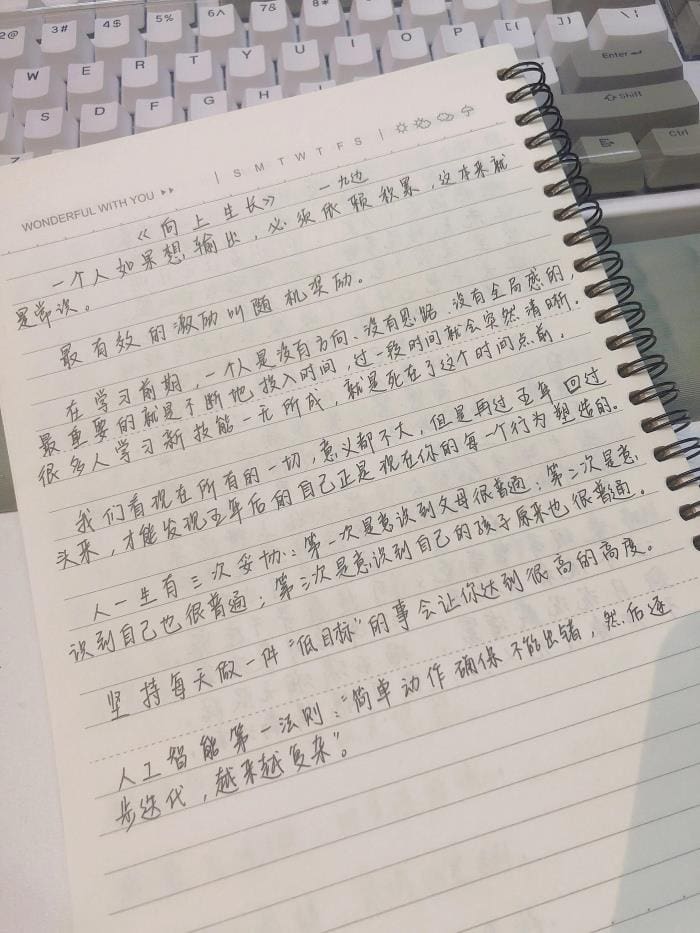 2@ 3# 4$ 5% 6^ 7& 8* \!
W E R T Y U I O P [{ ]} Enter
S D F G Shift
Ctrl
WONDERFUL WITH YOU
S M T W T F S
《向上生长》 一九边
一个人如果想输出，必须依赖积累，这本来就
是常识。
最有效的激励叫随机奖励。
在学习前期，一个人是没有方向、没有思路、没有全局感的，
最重要的就是不断地投入时间，过一段时间就会突然清晰。
很多人学习新技能一无所成，就是死在了这个时间点前。
我们看现在所有的一切，意义都不大，但是再过五年回过
头来，才能发现五年后的自己正是现在你的每一个行为塑造的。
人一生有三次妥协：第一次是意识到父母很普通；第二次是意
识到自己也很普通；第三次是意识到自己的孩子原来也很普通。
坚持每天做一件“低目标”的事会让你达到很高的高度。
人工智能第一法则：“简单动作确保不能出错，然后逐
步迭代，越来越复杂”。